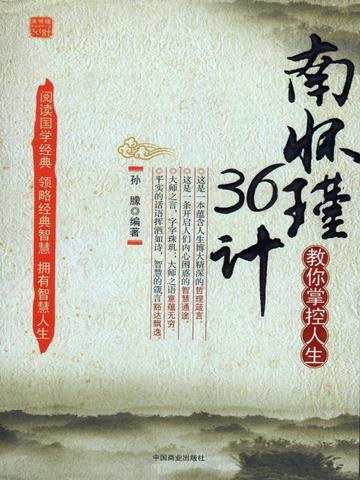 南怀瑾
36计
教你掌控人生
这是一本蕴含人生博大精深的哲理箴言，
这是一条开启人们内心困惑的智慧通途。
大师之言，字字珠玑；大师之语意蕴无穷。
平实的话语挥洒如诗，智慧的箴言豁达飘逸。
孙朦 编著
阅读国学经典 领略经典智慧 拥有智慧人生
中国商业出版社